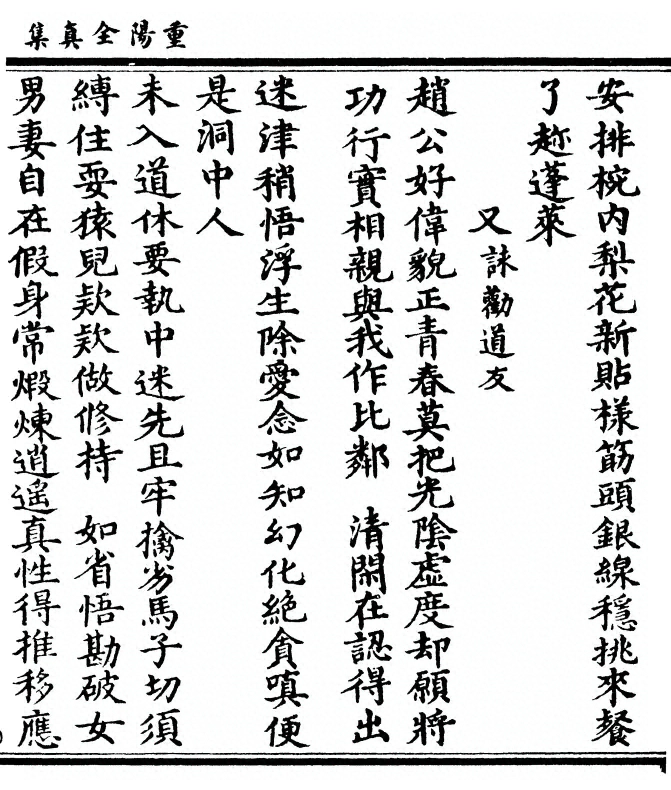 重陽全真集
安排椀内梨花新貼樣筯頭銀線穩挑來餐
了趂蓬萊
又詠勸道友
趙公好偉貌正青春莫把光陰虚度却願將
功行實相親與我作比鄰　清閑在認得出
迷津稍悟浮生除愛念如知幻化絶貪嗔便
是洞中人
未入道休要執中迷先且牢擒劣馬子切須
縛住耍猿兒欵欵做修持　如省悟勘破女
男妻自在假身常煅煉逍遥真性得推移應